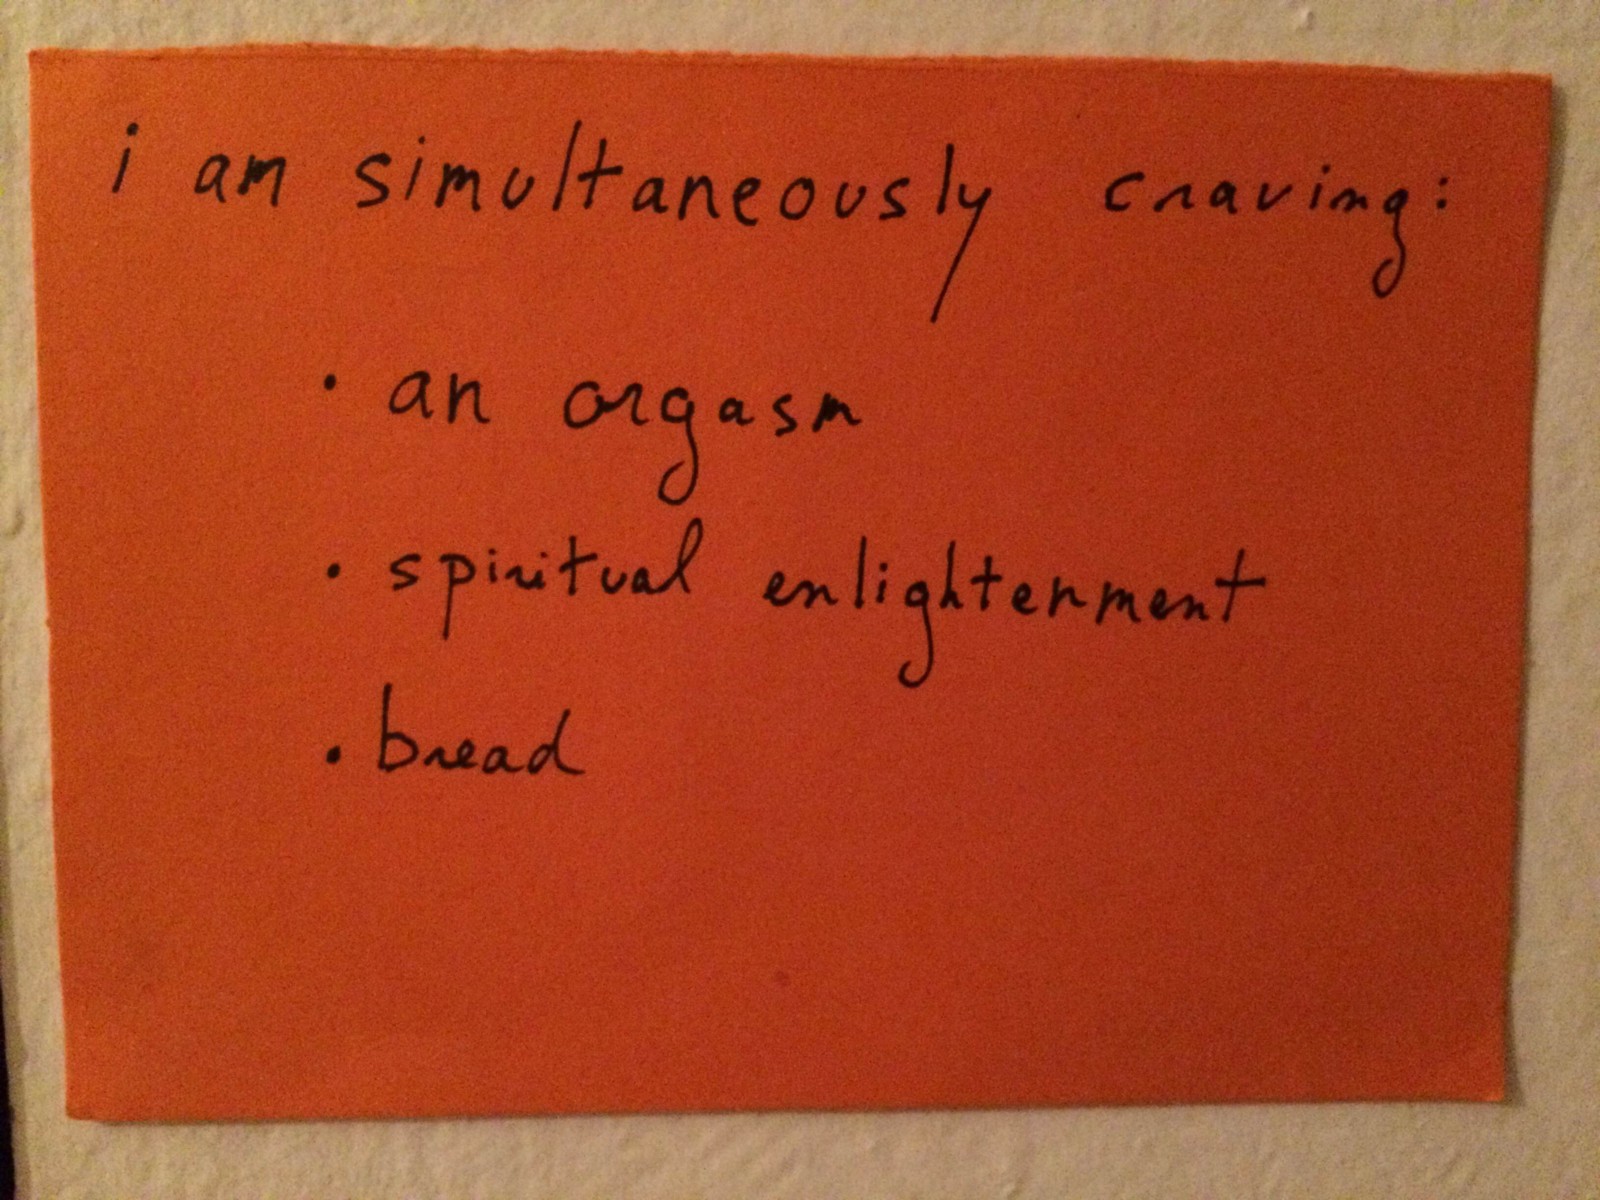 i am simultaneously craving:
· an orgasm
· spiritual enlightenment
· bread